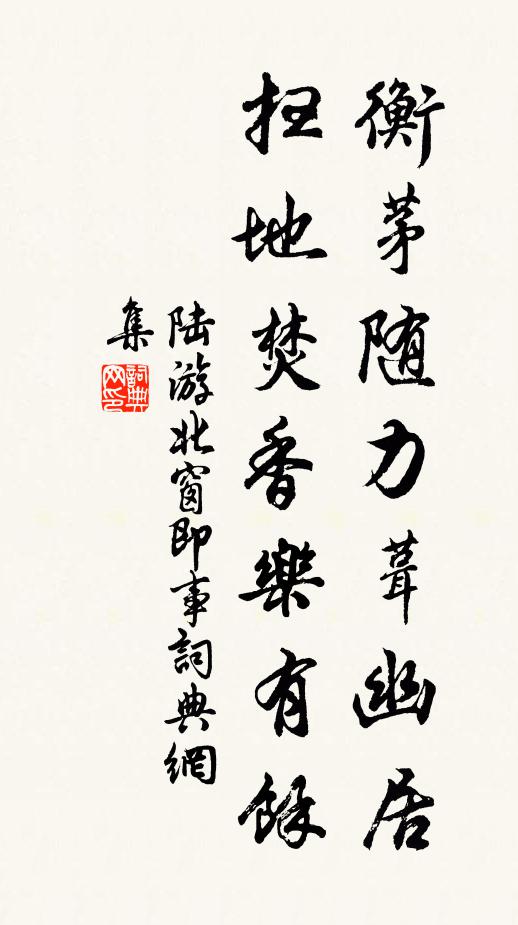 衡茅随力葺幽居
扫地焚香樂有餘
陆游北窗即事詞典網
集
詞典网印